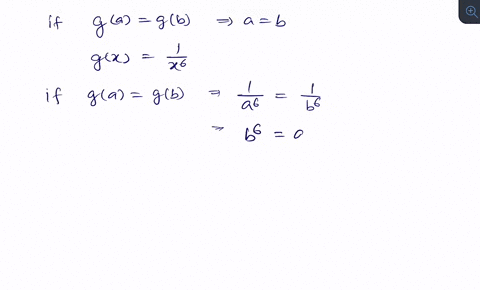 if g(a) = g(b) ⇒ a = b
g(x) = 1/x⁶
if g(a) = g(b) ⇒ 1/a⁶ = 1/b⁶
⇒ b⁶ = 0